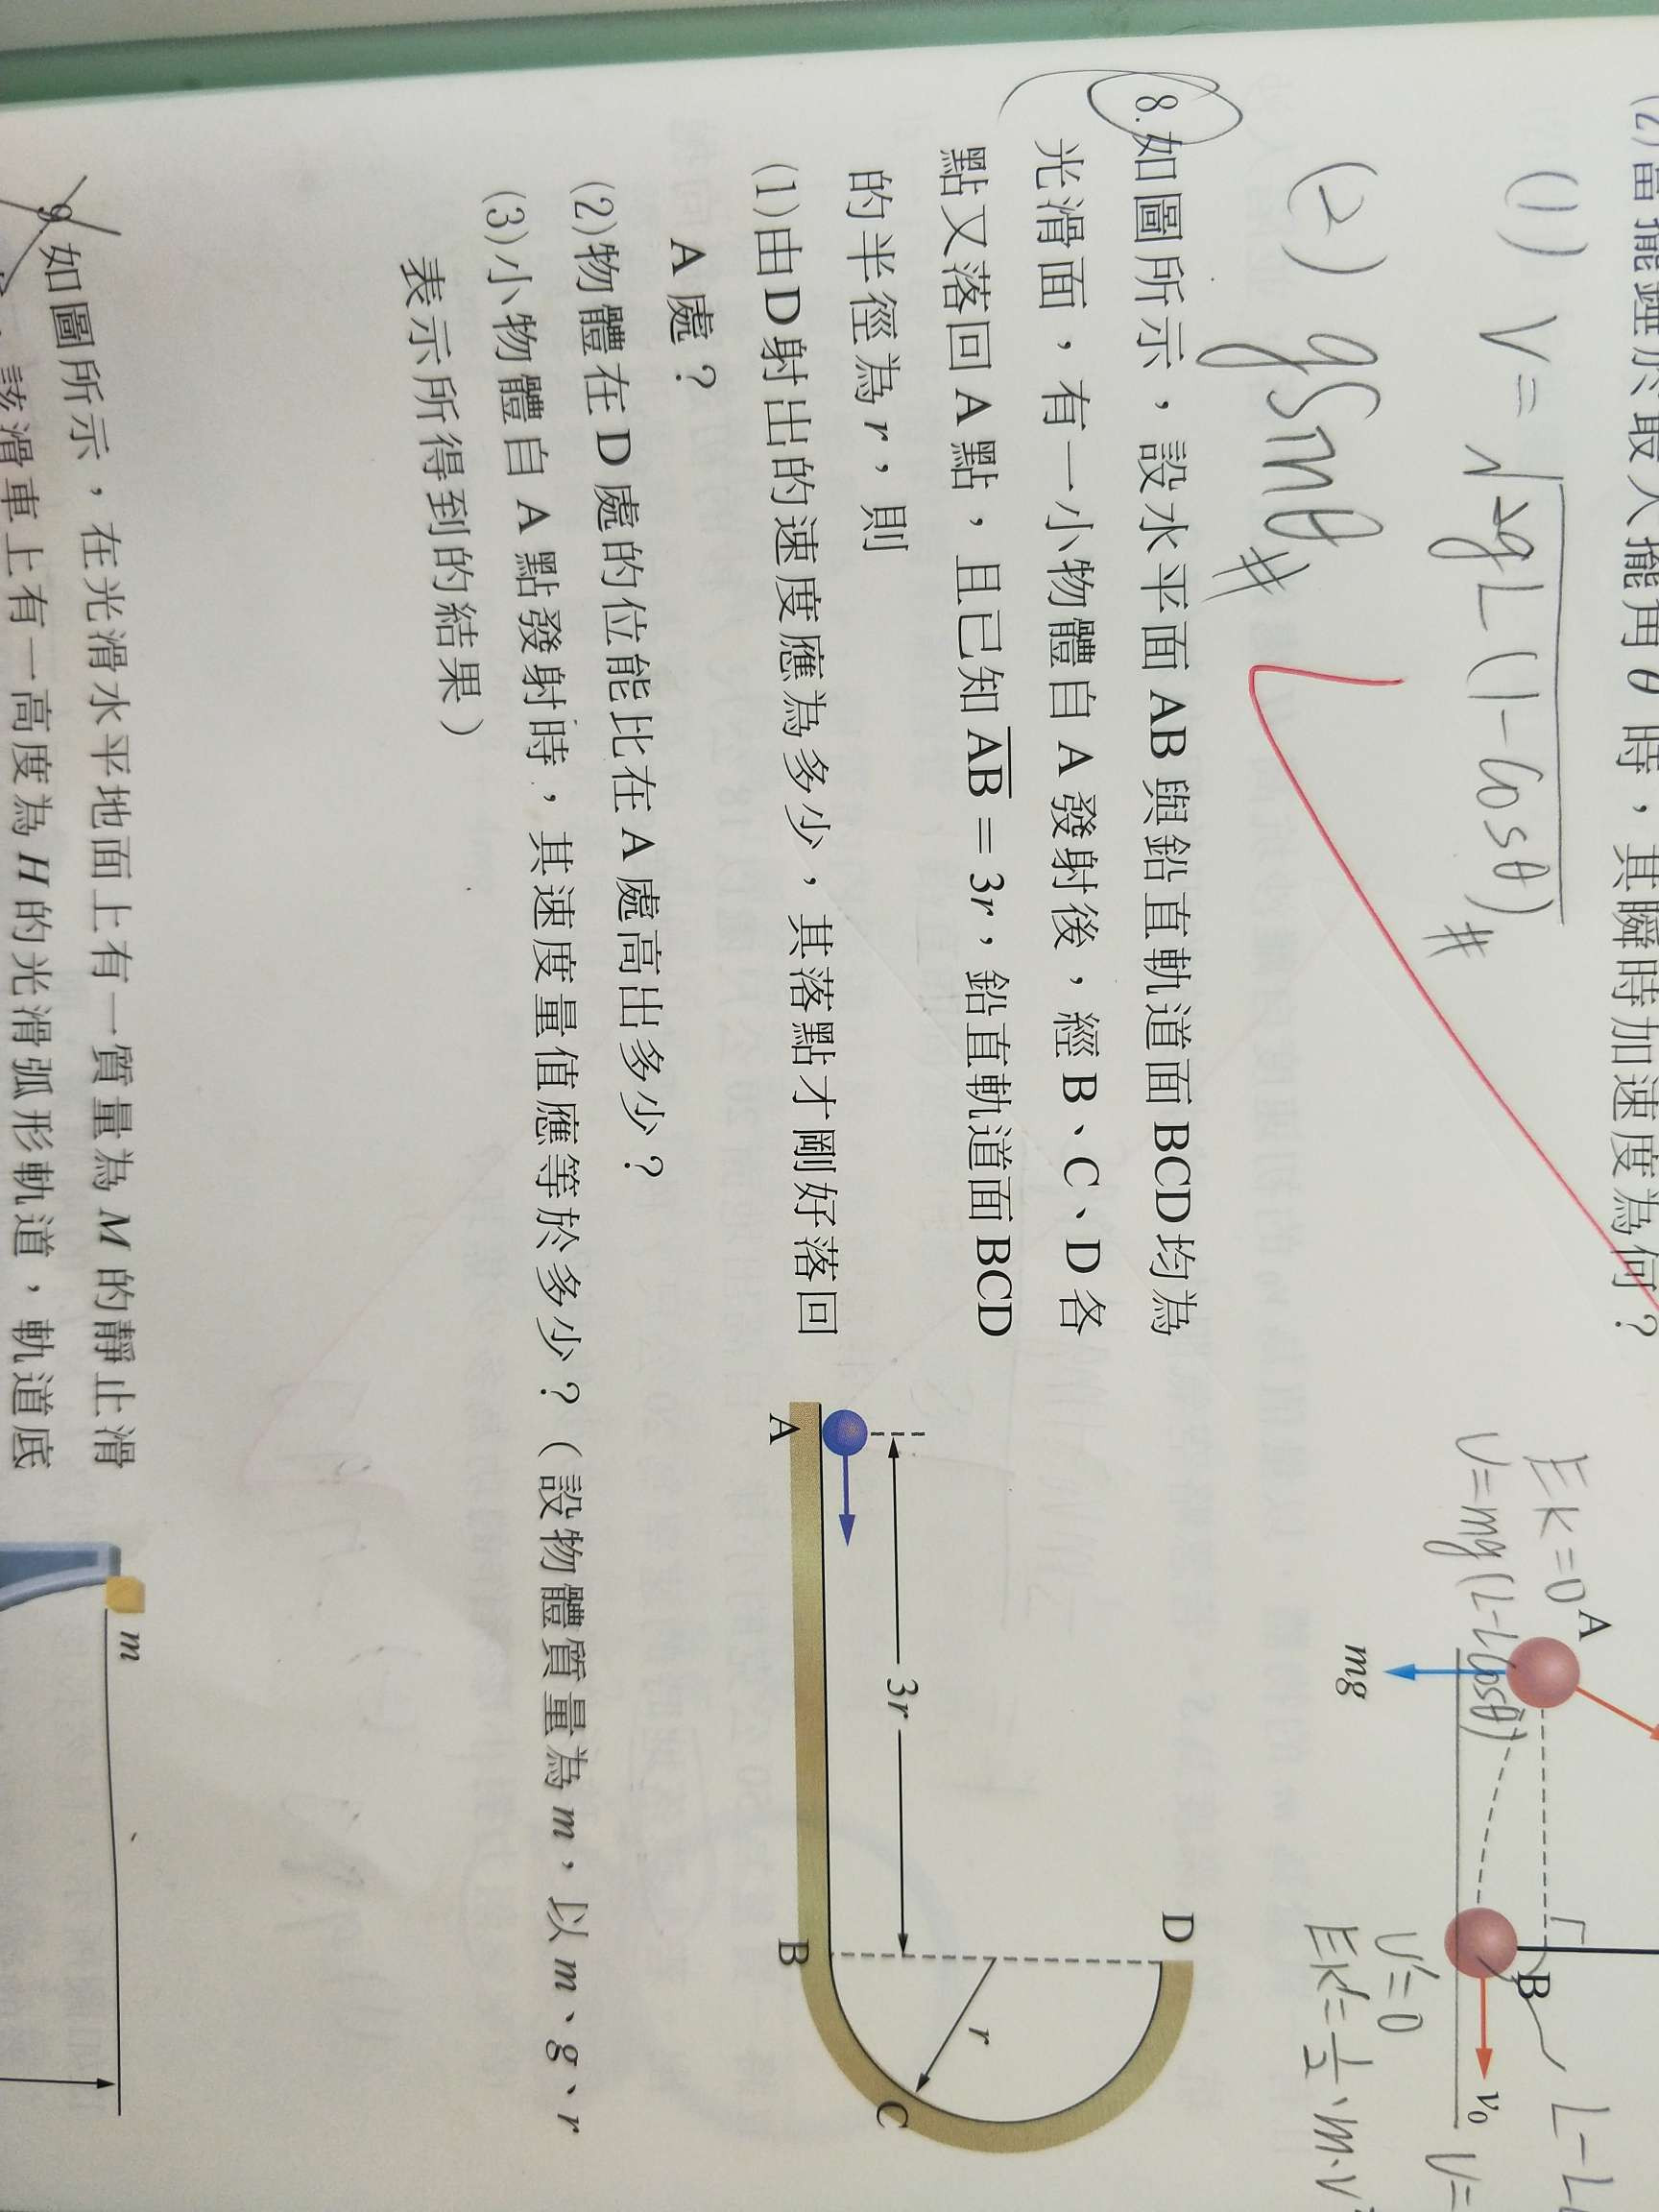 (2)當擺錘於最大擺角θ時，其瞬時加速度為何？
(1) V = √2gL(1-cosθ) #
(2) gsinθ #
EK=0
U=mg(L-Lcosθ)
A
mg
B
v₀
U'=0
EK'=½·m·V²
L-L
V=
8.如圖所示，設水平面 AB 與鉛直軌道面 BCD 均為
光滑面，有一小物體自 A 發射後，經 B、C、D 各
點又落回 A 點，且已知 A̅B̅ = 3r，鉛直軌道面 BCD
的半徑為 r，則
(1)由 D 射出的速度應為多少，其落點才剛好落回
A 處？
(2)物體在 D 處的位能比在 A 處高出多少？
(3)小物體自 A 點發射時，其速度量值應等於多少？（設物體質量為 m，以 m、g、r
表示所得到的結果）
D
3r
r
C
A
B
9.如圖所示，在光滑水平地面上有一質量為 M 的靜止滑
該滑車上有一高度為 H 的光滑弧形軌道，軌道底
m